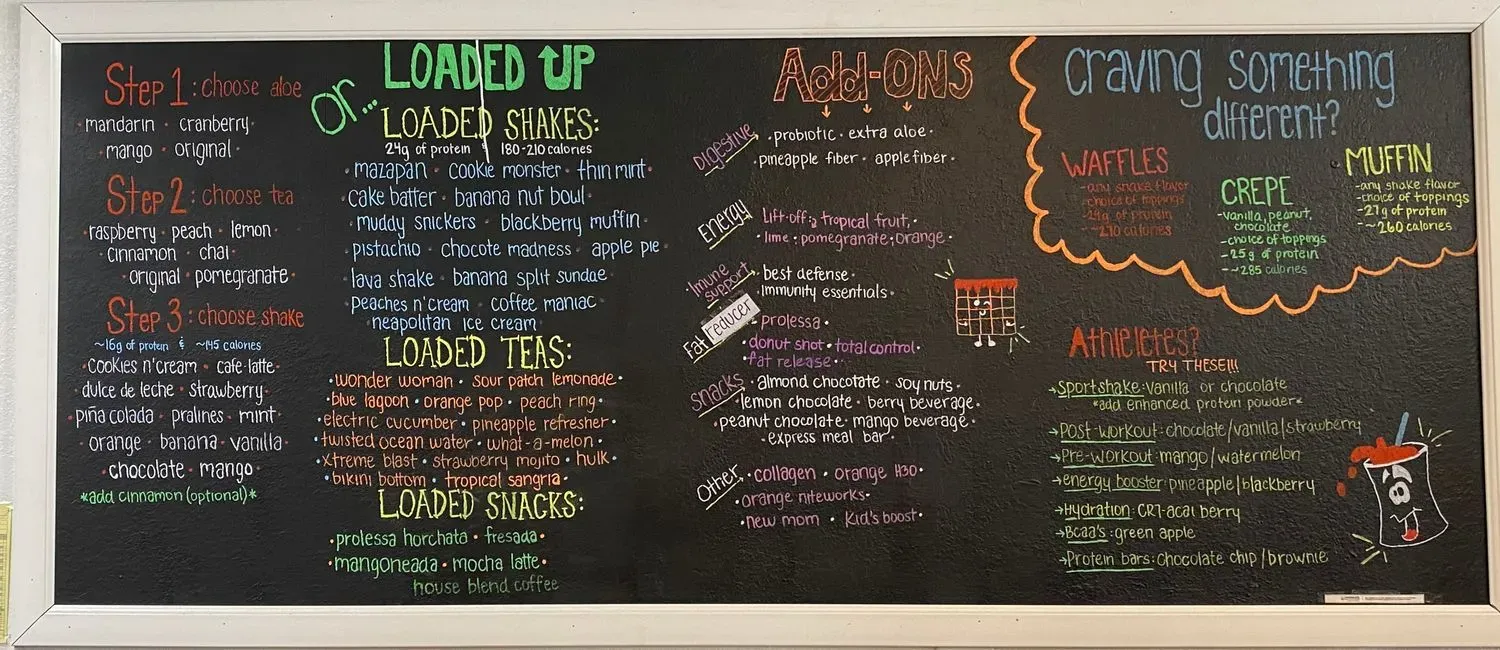 Step 1: choose aloe
mandarin · cranberry
mango · original
Step 2: choose tea
raspberry · peach · lemon
cinnamon · chai
original · pomegranate
Step 3: choose shake
~16g of protein & ~145 calories
cookies n'cream · cafe latte
dulce de leche · strawberry
piña colada · pralines · mint
orange · banana · vanilla
chocolate · mango
*add cinnamon (optional)*
or...
LOADED UP
LOADED SHAKES:
24g of protein & 180-210 calories
mazapan · cookie monster · thin mint
cake batter · banana nut bowl
muddy snickers · blackberry muffin
pistachio · chocote madness · apple pie
lava shake · banana split sundae
Peaches n'cream · coffee maniac
neapolitan ice cream
LOADED TEAS:
wonder woman · sour patch lemonade
blue lagoon · orange pop · peach ring
electric cucumber · pineapple refresher
twisted ocean water · what-a-melon
xtreme blast · strawberry mojito · hulk
bikini bottom · tropical sangria
LOADED SNACKS:
prolessa horchata · fresada
mangoneada · mocha latte
house blend coffee
Add-ONS
Digestive
probiotic · extra aloe
pineapple fiber · apple fiber
ENERGY
Lift-off: tropical fruit,
lime · pomegranate, orange
Imune support
best defense
Immunity essentials
Fat reducer
prolessa
donut shot · total control
fat release
SNACKS
almond chocotate · soy nuts
lemon chocolate · berry beverage
peanut chocolate · mango beverage
express meal bar
Other
collagen · orange H30
orange niteworks
new mom · Kid's boost
Craving something
different?
WAFFLES
-any shake flavor
-choice of toppings
-24g of protein
-~210 calories
CREPE
-vanilla, peanut,
chocolate
-choice of toppings
-25g of protein
-~285 calories
MUFFIN
-any shake flavor
-choice of toppings
-27g of protein
-~260 calories
Athleletes?
TRY THESE!!!
→Sportshake: vanilla or chocolate
*add enhanced protein powder*
→Post-workout: chocolate/vanilla/strawberry
→Pre-workout: mango/watermelon
→energy booster: pineapple/blackberry
→Hydration: CR7-acai berry
→Bcaa's: green apple
→Protein bars: chocolate chip/brownie